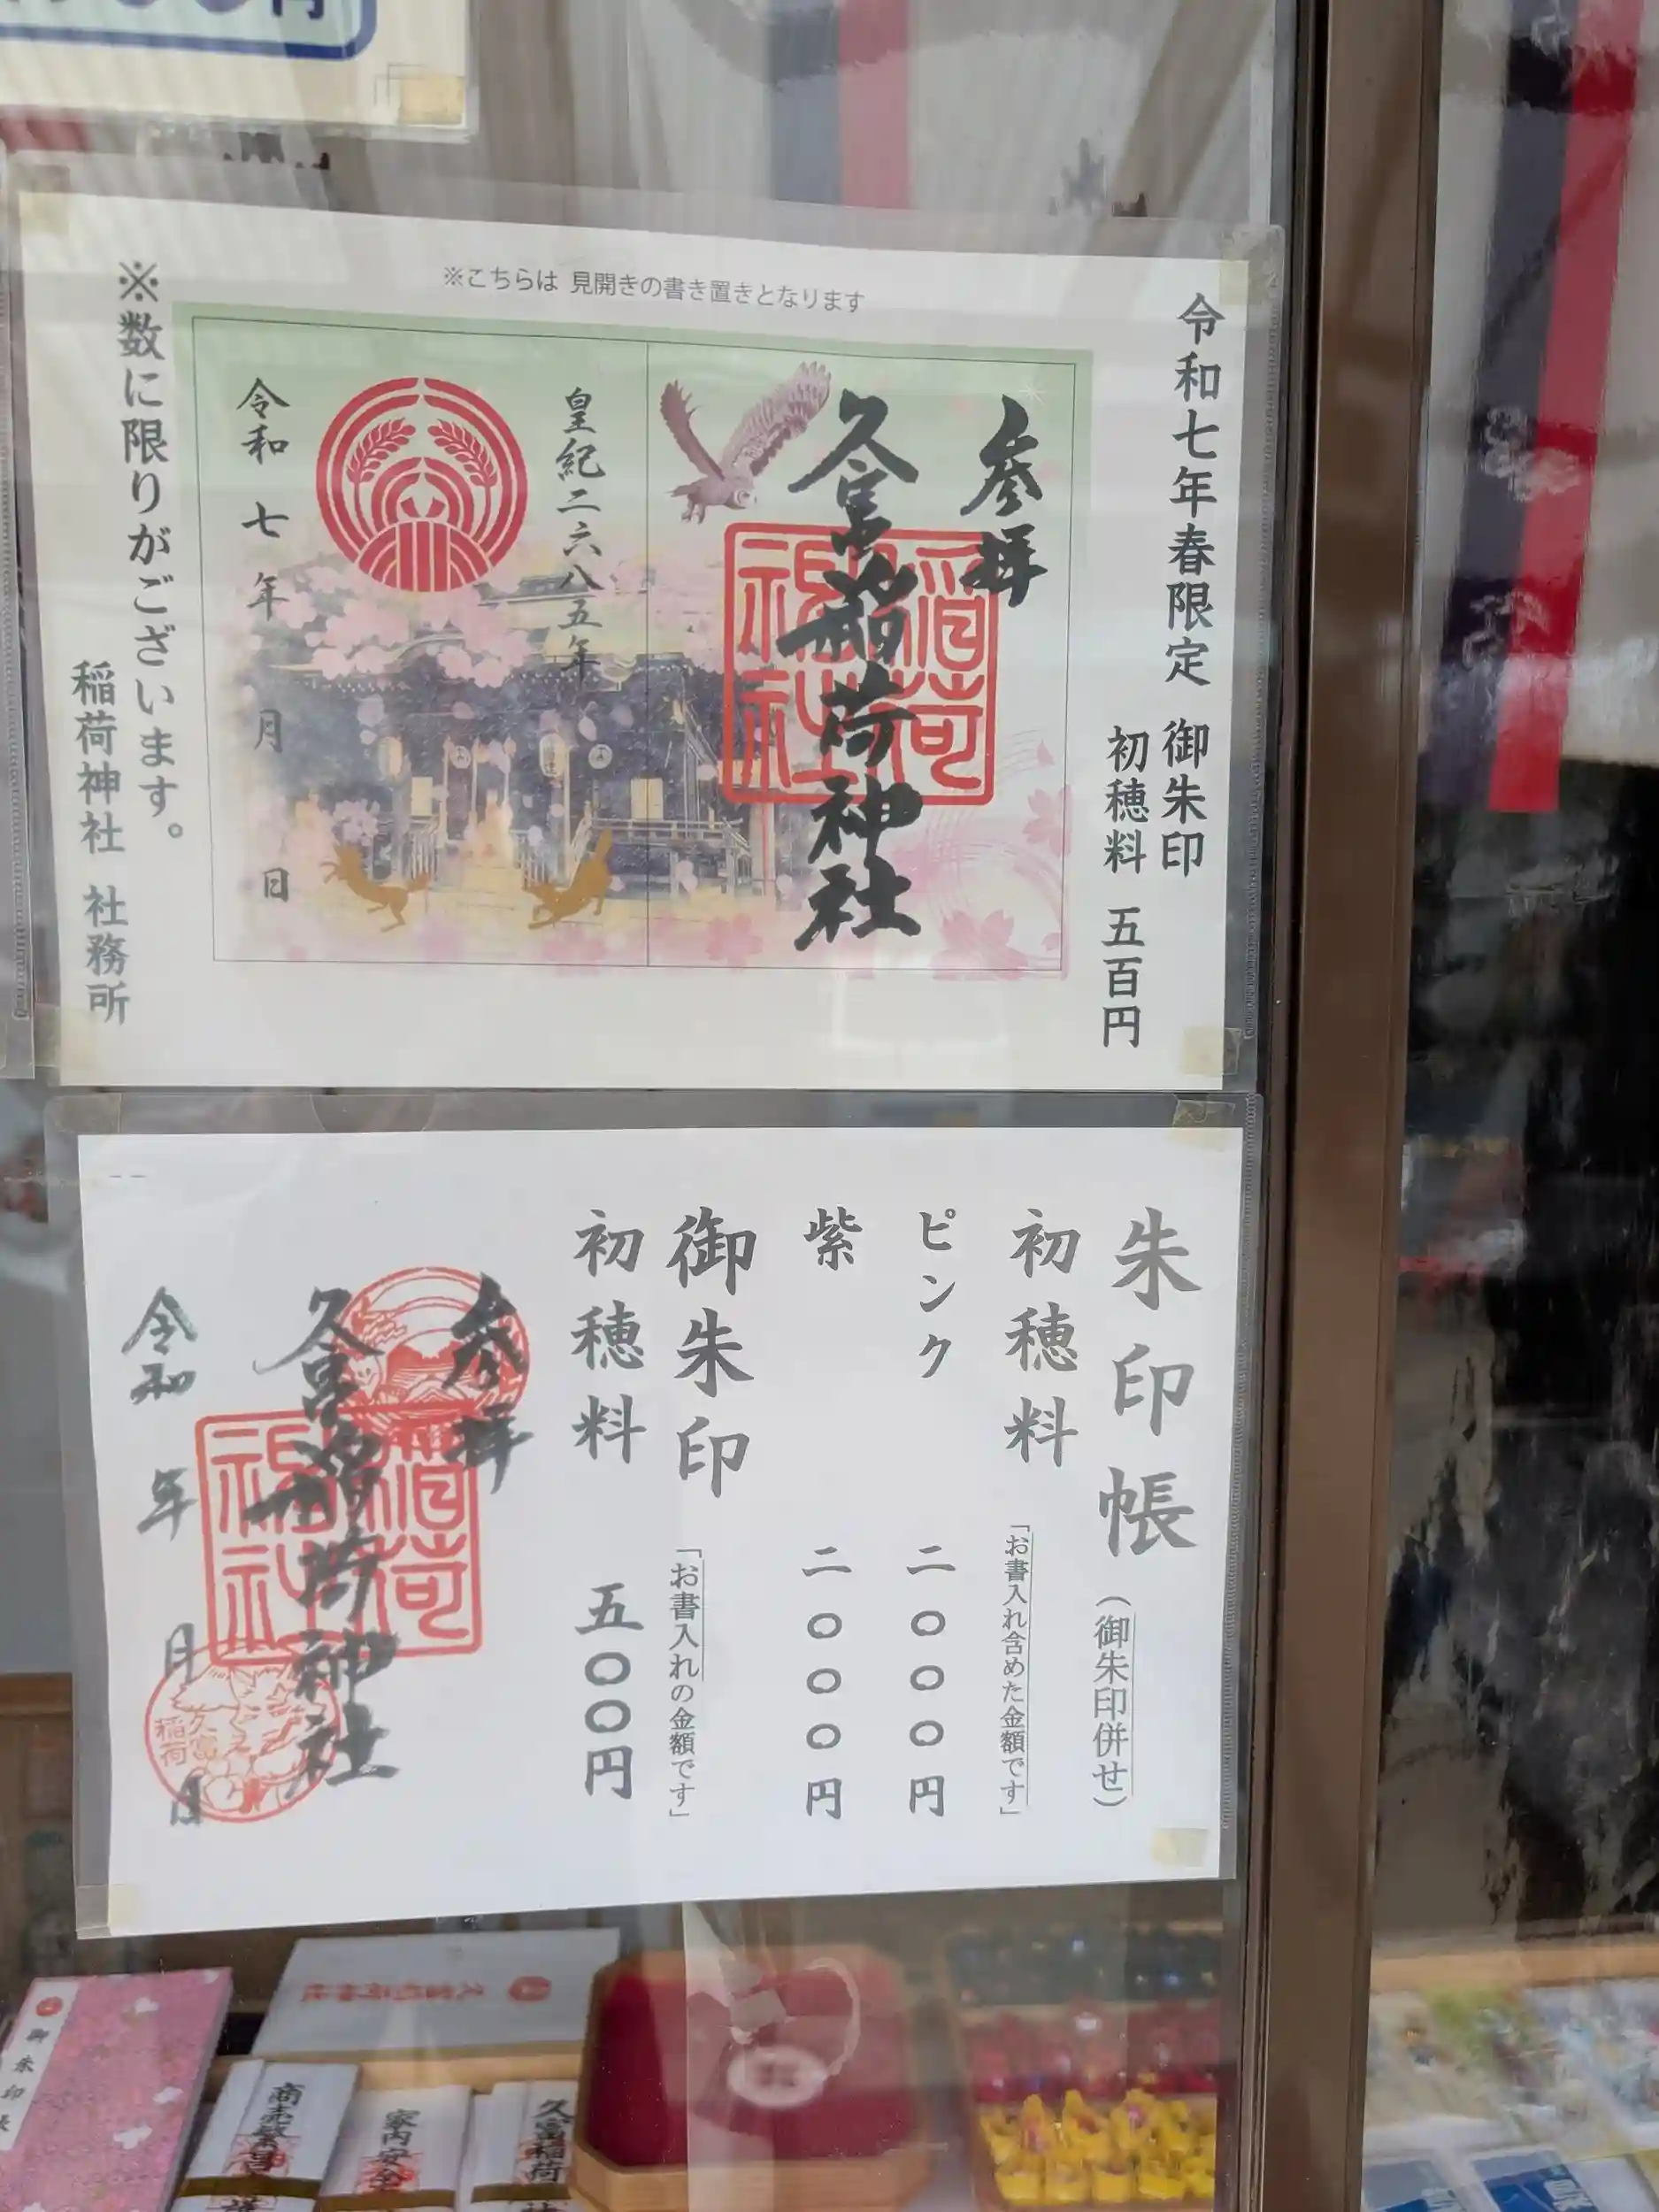 ※こちらは 見開きの書き置きとなります
令和七年春限定 御朱印
初穂料 五百円
参拝
久富稲荷神社
稲荷神社
皇紀二六八五年
令和 七 年 月 日
※数に限りがございます。
稲荷神社 社務所
朱印帳(御朱印併せ)
初穂料「お書入れ含めた金額です」
ピンク 二〇〇〇円
紫 二〇〇〇円
御朱印「お書入れの金額です」
初穂料 五〇〇円
参拝
久富稲荷神社
稲荷神社
令和 年 月 日
久富
稲荷
御朱印帳
商売繁昌
家内安全
久富稲荷